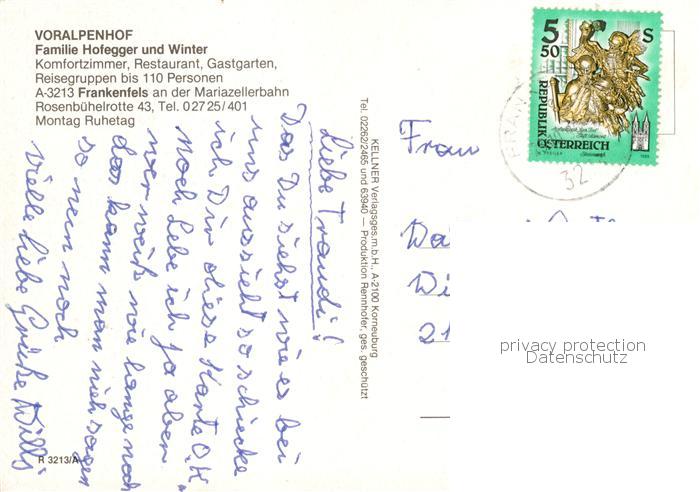 VORALPENHOF
Familie Hofegger und Winter
Komfortzimmer, Restaurant, Gastgarten,
Reisegruppen bis 110 Personen
A-3213 Frankenfels an der Mariazellerbahn
Rosenbühelrotte 43, Tel. 02725/401
Montag Ruhetag
Liebe Traudi!
Das Du siehst wie es bei
uns aussieht so schicke
ich Dir diese Karte O.K.
Noch Lebe ich ja aber
wer weiß wie lange noch
das kann man nicht sagen
so nein noch
Vielle liebe Grüße Willi
R 3213/A
KELLNER Verlagsges.m.b.H., A-2100 Korneuburg
Tel. 02262/2465 und 63940 — Produktion Rennhofer, ges. geschützt
5 50 S
REPUBLIK
ÖSTERREICH
FRAN
32
Frau
Da
Wi
21
privacy protection
Datenschutz